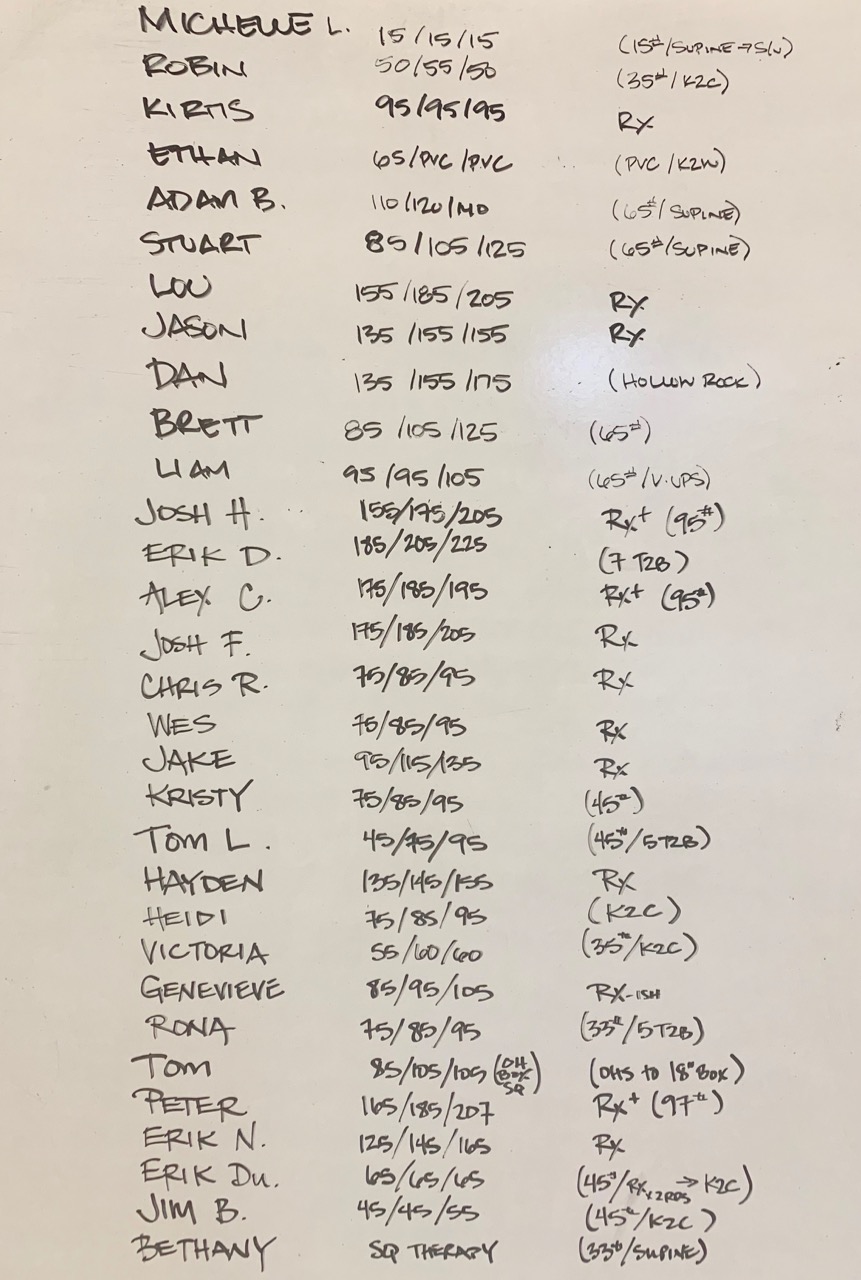 MICHELLE L. 15/15/15 (15#/SUPINE→S/U)
ROBIN 50/55/50 (35#/K2C)
KIRTIS 95/95/95 RX
ETHAN 65/PVC/PVC (PVC/K2W)
ADAM B. 110/120/140 (65#/SUPINE)
STUART 85/105/125 (65#/SUPINE)
LOU 155/185/205 RX
JASON 135/155/155 RX
DAN 135/155/175 (HOLLOW ROCK)
BRETT 85/105/125 (65#)
LIAM 95/95/105 (65#/V-UPS)
JOSH H. 155/175/205 RX+ (95#)
ERIK D. 185/205/225 (7 T2B)
ALEX C. 175/185/195 RX+ (95#)
JOSH F. 175/185/205 RX
CHRIS R. 75/85/95 RX
WES 75/85/95 RX
JAKE 95/115/135 RX
KRISTY 75/85/95 (45#)
TOM L. 45/75/95 (45#/5T2B)
HAYDEN 135/145/155 RX
HEIDI 75/85/95 (K2C)
VICTORIA 55/60/60 (35#/K2C)
GENEVIEVE 85/95/105 RX-ISH
RONA 75/85/95 (33#/5T2B)
TOM 85/105/105 (OH BOX SQ) (OHS to 18" BOX)
PETER 165/185/207 RX+ (97#)
ERIK N. 125/145/165 RX
ERIK DU. 65/65/65 (45#/RX x2RDS → K2C)
JIM B. 45/45/55 (45#/K2C)
BETHANY SQ THERAPY (33#/SUPINE)